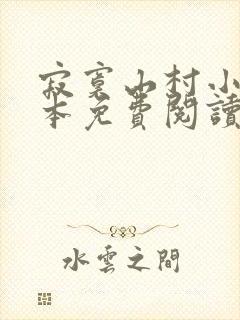 寂寞山村小
本免費閱讀
水雲之間